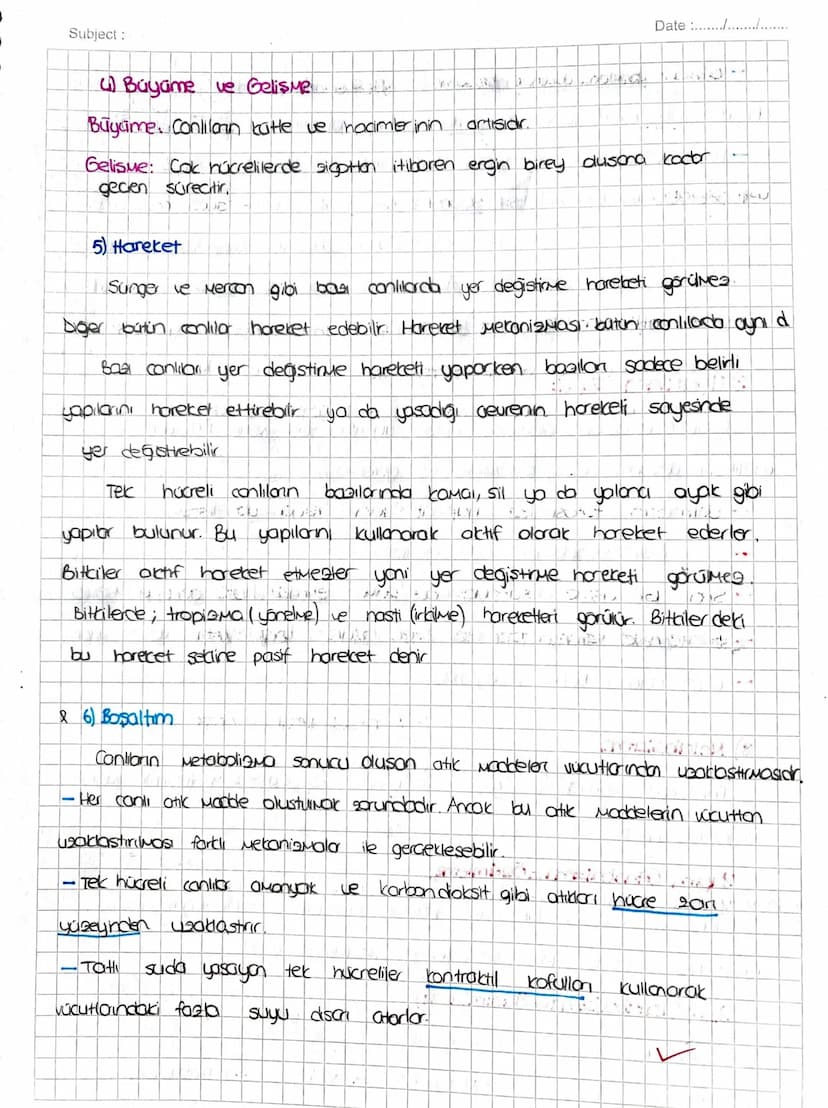 Subject :
Date :......../......../........
4) Büyüme ve Gelişme
Büyüme: Canlıların kütle ve hacimlerinin artışıdır.
Gelişme: Çok hücrelilerde zigottan itibaren ergin birey oluşana kadar
geçen süreçtir.
5) Hareket
Sünger ve mercan gibi bazı canlılarda yer değiştirme hareketi görülmez
Diğer bütün canlılar hareket edebilir. Hareket mekanizması bütün canlılarda aynı d
Bazı canlılar yer değiştirme hareketi yaparken bazıları sadece belirli
yapılarını hareket ettirebilir ya da yaşadığı çevrenin hareketi sayesinde
yer değiştirebilir
Tek hücreli canlıların bazılarında kamçı, sil ya da yalancı ayak gibi
yapılar bulunur. Bu yapılarını kullanarak aktif olarak hareket ederler.
Bitkiler aktif hareket etmezler yani yer değiştirme hareketi görülmez.
Bitkilerde; tropizma (yönelme) ve nasti (irkilme) hareketleri görülür. Bitkilerdeki
bu hareket şekline pasif hareket denir
6) Boşaltım
Canlıların metabolizma sonucu oluşan atık maddeleri vücutlarından uzaklaştırmasıdır.
- Her canlı atık madde oluşturmak zorundadır. Ancak bu atık maddelerin vücuttan
uzaklaştırılması farklı mekanizmalar ile gerçekleşebilir.
- Tek hücreli canlılar amonyak ve karbondioksit gibi atıkları hücre zarı
yüzeyinden uzaklaştırır.
- Tatlı suda yaşayan tek hücreliler kontraktil kofulları kullanarak
vücutlarındaki fazla suyu dışarı atarlar.